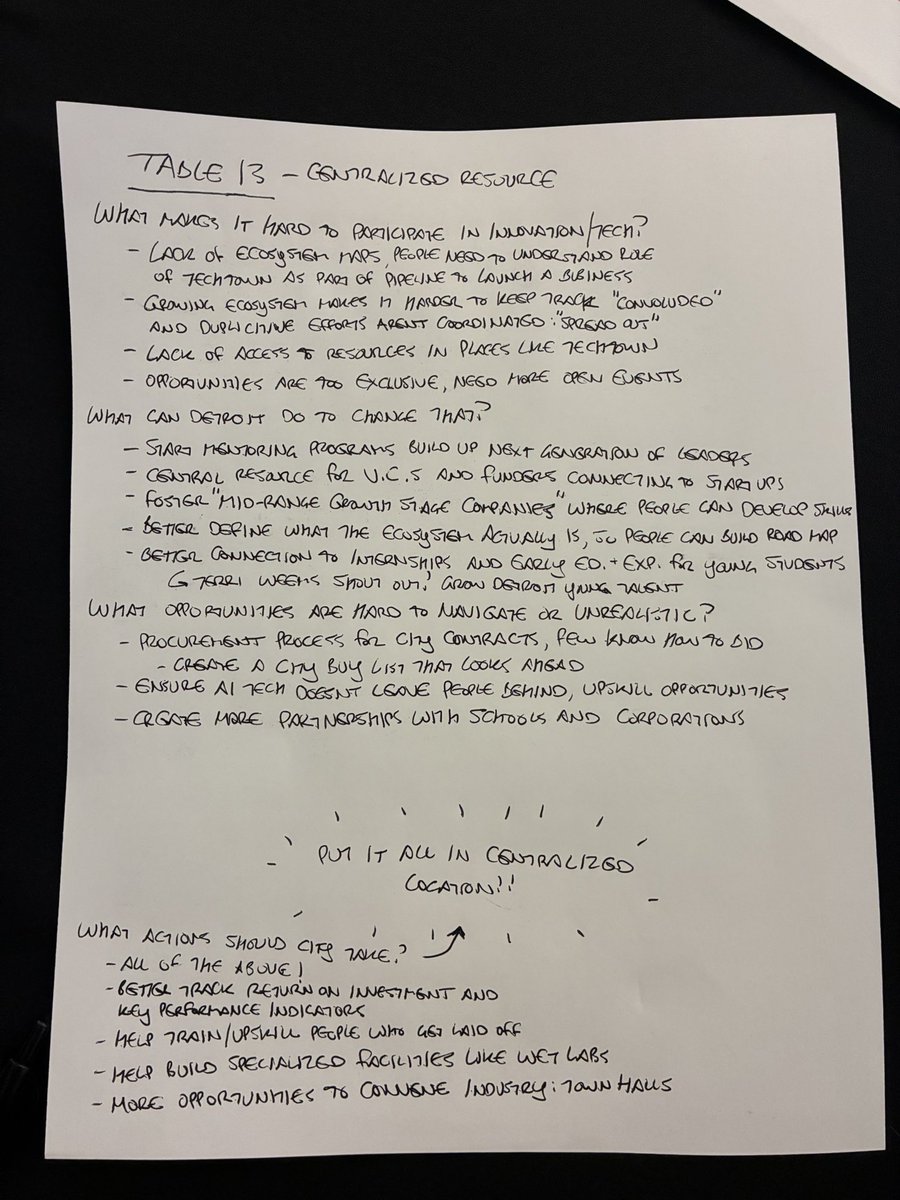 TABLE 13 – CENTRALIZED RESOURCE
WHAT MAKES IT HARD TO PARTICIPATE IN INNOVATION/TECH?
– LACK OF ECOSYSTEM MAPS, PEOPLE NEED TO UNDERSTAND ROLE
OF TECHTOWN AS PART OF PIPELINE TO LAUNCH A BUSINESS
– GROWING ECOSYSTEM MAKES IT HARDER TO KEEP TRACK "CONVOLUDED"
AND DUPLICITIVE EFFORTS ARENT COORDINATED: "SPREAD OUT"
– LACK OF ACCESS TO RESOURCES IN PLACES LIKE TECHTOWN
– OPPORTUNITIES ARE TOO EXCLUSIVE, NEED MORE OPEN EVENTS
WHAT CAN DETROIT DO TO CHANGE THAT?
– START MENTORING PROGRAMS BUILD UP NEXT GENERATION OF LEADERS
– CENTRAL RESOURCE FOR V.C.S AND FUNDERS CONNECTING TO STARTUPS
– FOSTER "MID-RANGE GROWTH STAGE COMPANIES" WHERE PEOPLE CAN DEVELOP SKILLS
– BETTER DEFINE WHAT THE ECOSYSTEM ACTUALLY IS, SO PEOPLE CAN BUILD ROAD MAP
– BETTER CONNECTION TO INTERNSHIPS AND EARLY ED. + EXP. FOR YOUNG STUDENTS
↳ TERRI WEEMS SHOUT OUT! GROW DETROIT YOUNG TALENT
WHAT OPPORTUNITIES ARE HARD TO NAVIGATE OR UNREALISTIC?
– PROCUREMENT PROCESS FOR CITY CONTRACTS, FEW KNOW HOW TO BID
– CREATE A CITY BUY LIST THAT LOOKS AHEAD
– ENSURE AI TECH DOESNT LEAVE PEOPLE BEHIND, UPSKILL OPPORTUNITIES
– CREATE MORE PARTNERSHIPS WITH SCHOOLS AND CORPORATIONS
PUT IT ALL IN CENTRALIZED
LOCATION!!
WHAT ACTIONS SHOULD CITY TAKE?
– ALL OF THE ABOVE!
– BETTER TRACK RETURN ON INVESTMENT AND
KEY PERFORMANCE INDICATORS
– HELP TRAIN/UPSKILL PEOPLE WHO GET LAID OFF
– HELP BUILD SPECIALIZED FACILITIES LIKE WET LABS
– MORE OPPORTUNITIES TO CONVENE INDUSTRY: TOWN HALLS